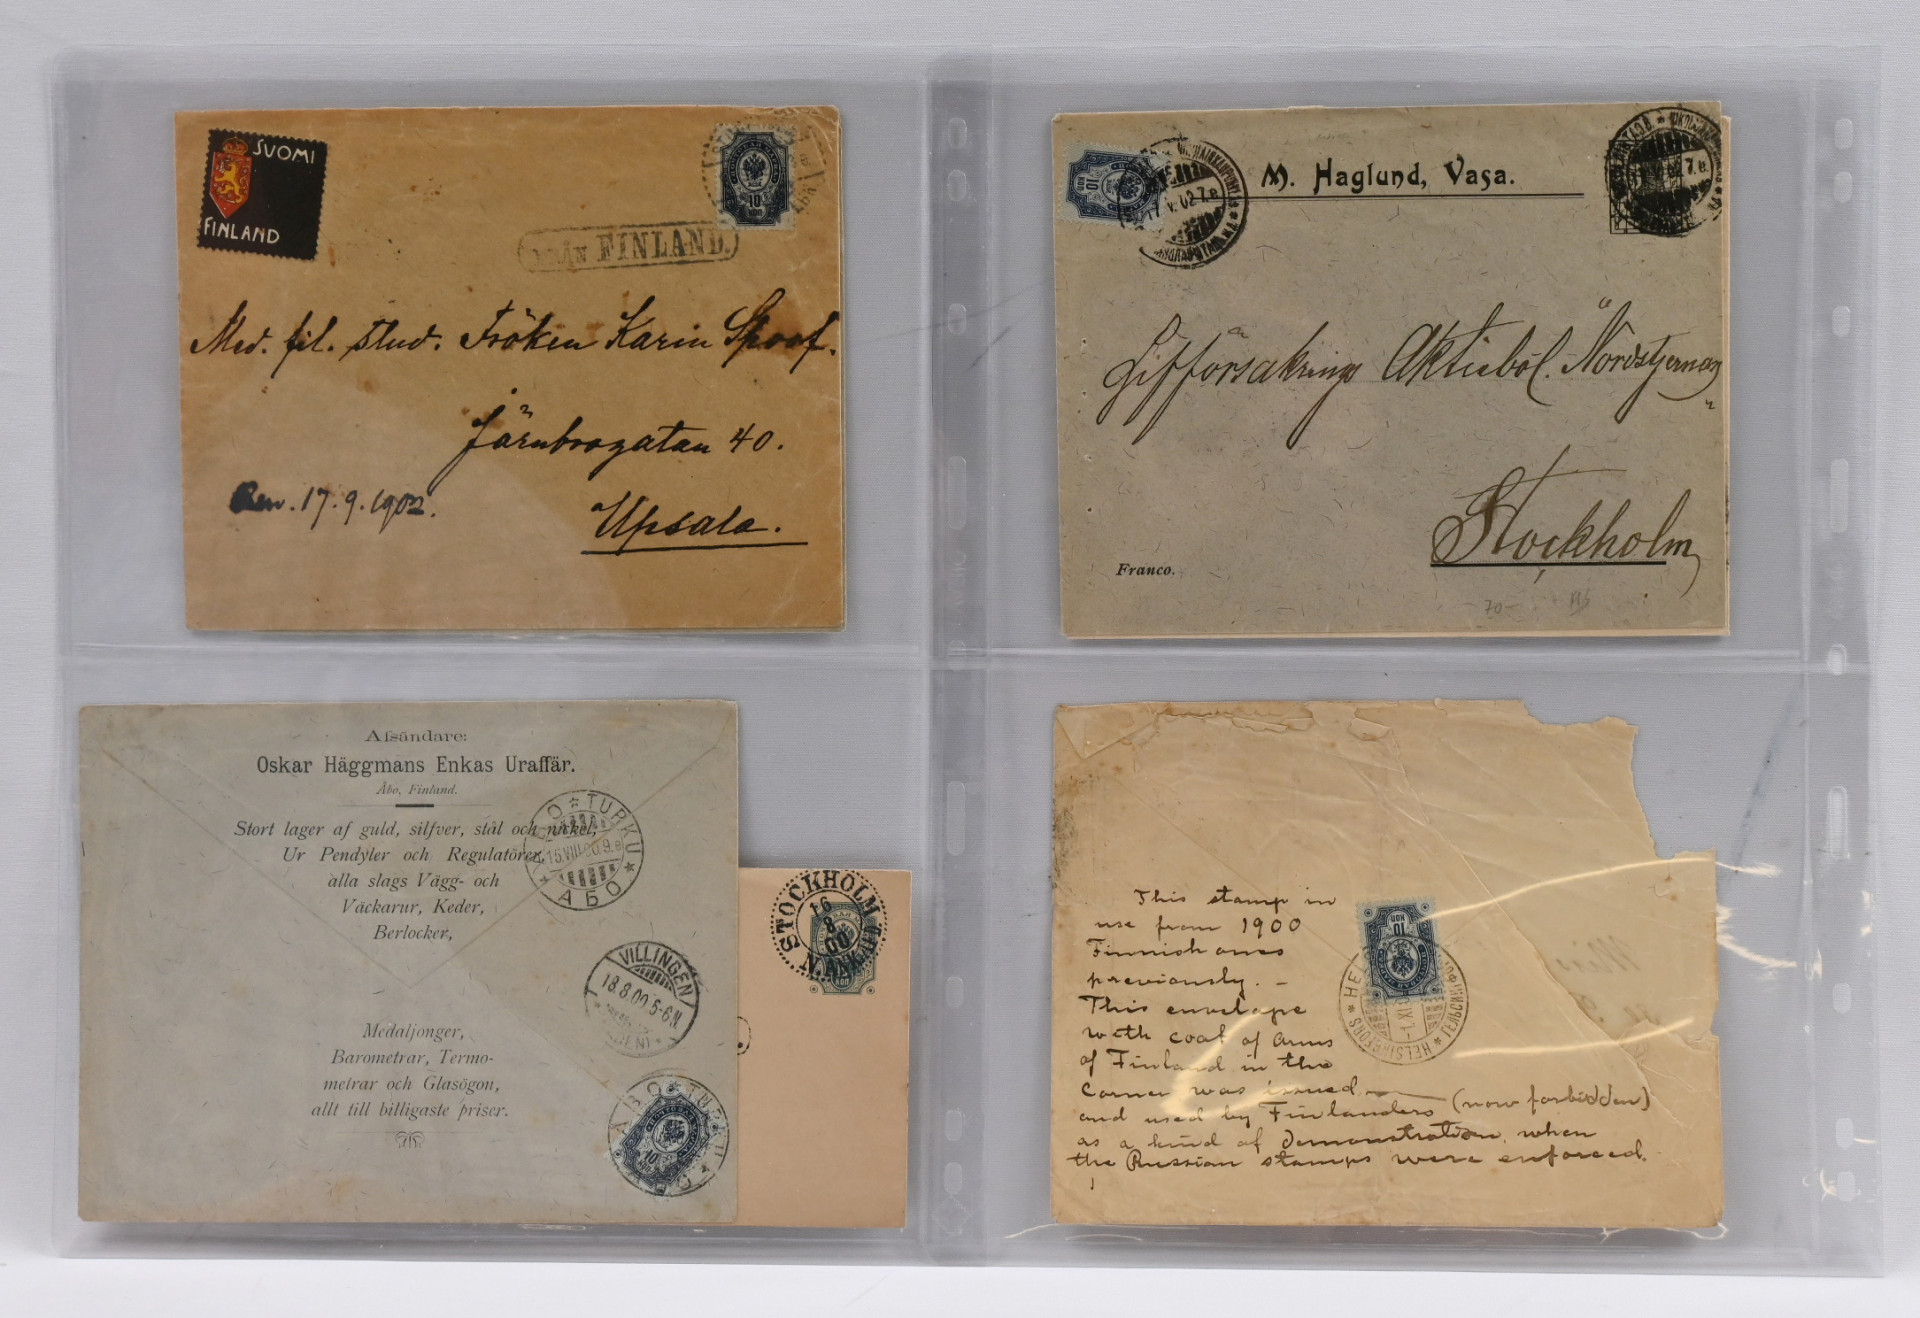 SUOMI
FINLAND
10
КОП
FINLAND.
Med. fil. stud. Fröken Karin Spoof.
Järnbrogatan 40.
Rev. 17.9.1902.
Upsala.
10
КОП
17.V.02 7.e
M. Haglund, Vasa.
02 7.e
Lifförsäkrings Aktiebol. "Nordstjernan"
Stockholm
Franco.
70-
Afsändare:
Oskar Häggmans Enkas Uraffär.
Åbo, Finland.
Stort lager af guld, silfver, stål och nickel,
Ur Pendyler och Regulatörer,
alla slags Vägg- och
Väckarur, Keder,
Berlocker,
Medaljonger,
Barometrar, Termo-
metrar och Glasögon,
allt till billigaste priser.
ÅBO * TURKU *
15.VIII.00.9.e
АБО
VILLINGEN
18.8.00.5-6N
ÅBO * TURKU
10
STOCKHOLM
16
8
00
КОП
This stamp in
use from 1900
Finnish ones
previously. –
This envelope
with coat of arms
of Finland in the
corner was issued
and used by Finlanders (now forbidden)
as a kind of demonstration, when
the Russian stamps were enforced.
10
КОП
HELSINGFORS * HELSINKI
ГЕЛЬСИНГФОРСЪ
Miss